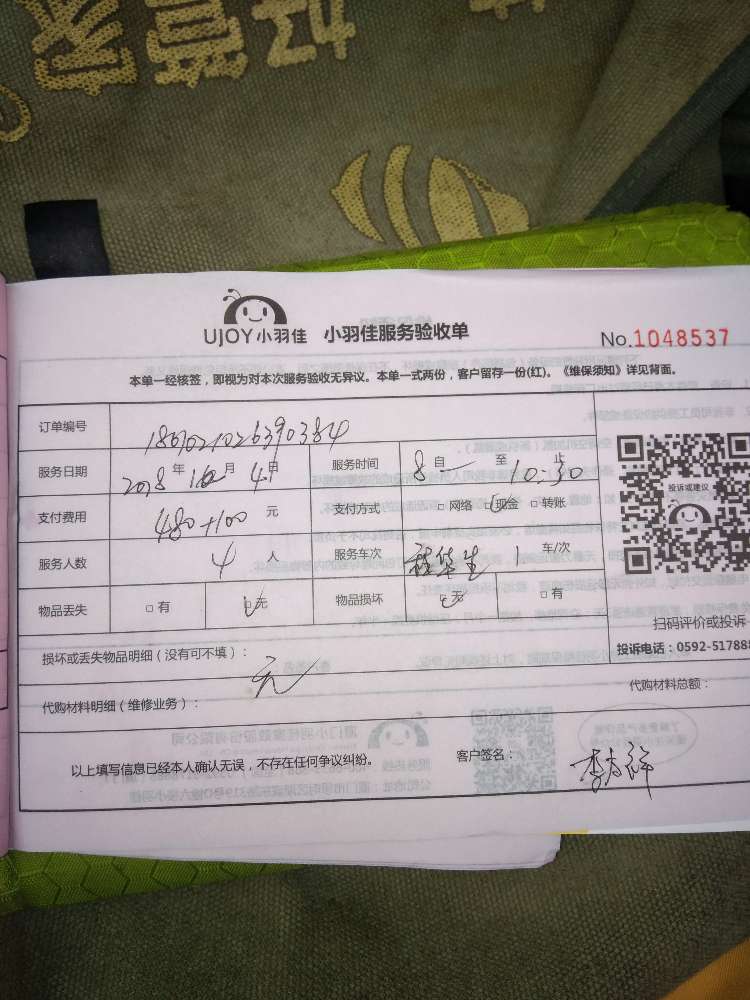 好管家
UJOY小羽佳 小羽佳服务验收单 No.1048537
本单一经核签，即视为对本次服务验收无异议。本单一式两份，客户留存一份(红)。《维保须知》详见背面。
订单编号
服务日期 2018年 月4日 服务时间 8自 至10:50止
支付费用 480+100元 支付方式 □网络 现金 □转账
服务人数 4人 服务车次 1车/次
物品丢失 □有 无 物品损坏 无 □有
投诉或建议
扫码评价或投诉
投诉电话：0592-517888
损坏或丢失物品明细（没有可不填）：无
代购材料明细（维修业务）： 代购材料总额：
以上填写信息已经本人确认无误，不存在任何争议纠纷。 客户签名：